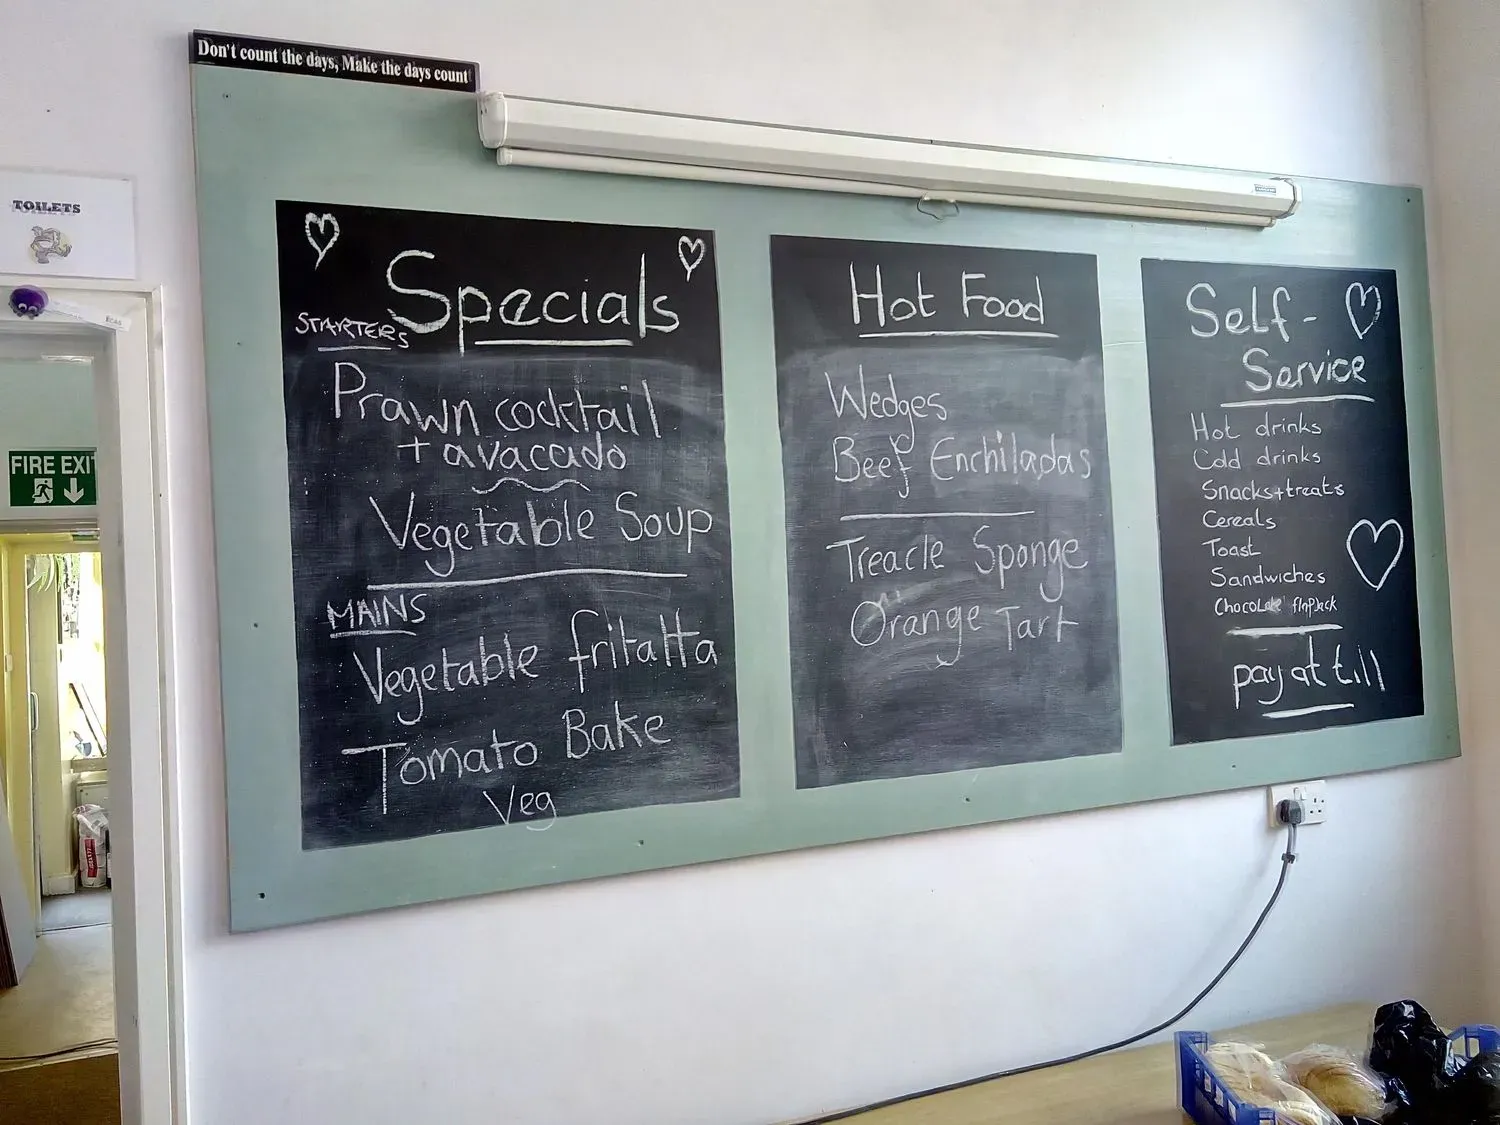 Don't count the days, Make the days count
TOILETS
FIRE EXI
Specials
STARTERS
Prawn cocktail
+ avacado
Vegetable Soup
MAINS
Vegetable fritatta
Tomato Bake
Veg
Hot Food
Wedges
Beef Enchiladas
Treacle Sponge
Orange Tart
Self-
Service
Hot drinks
Cold drinks
Snacks+treats
Cereals
Toast
Sandwiches
Chocolate flapjack
pay at till